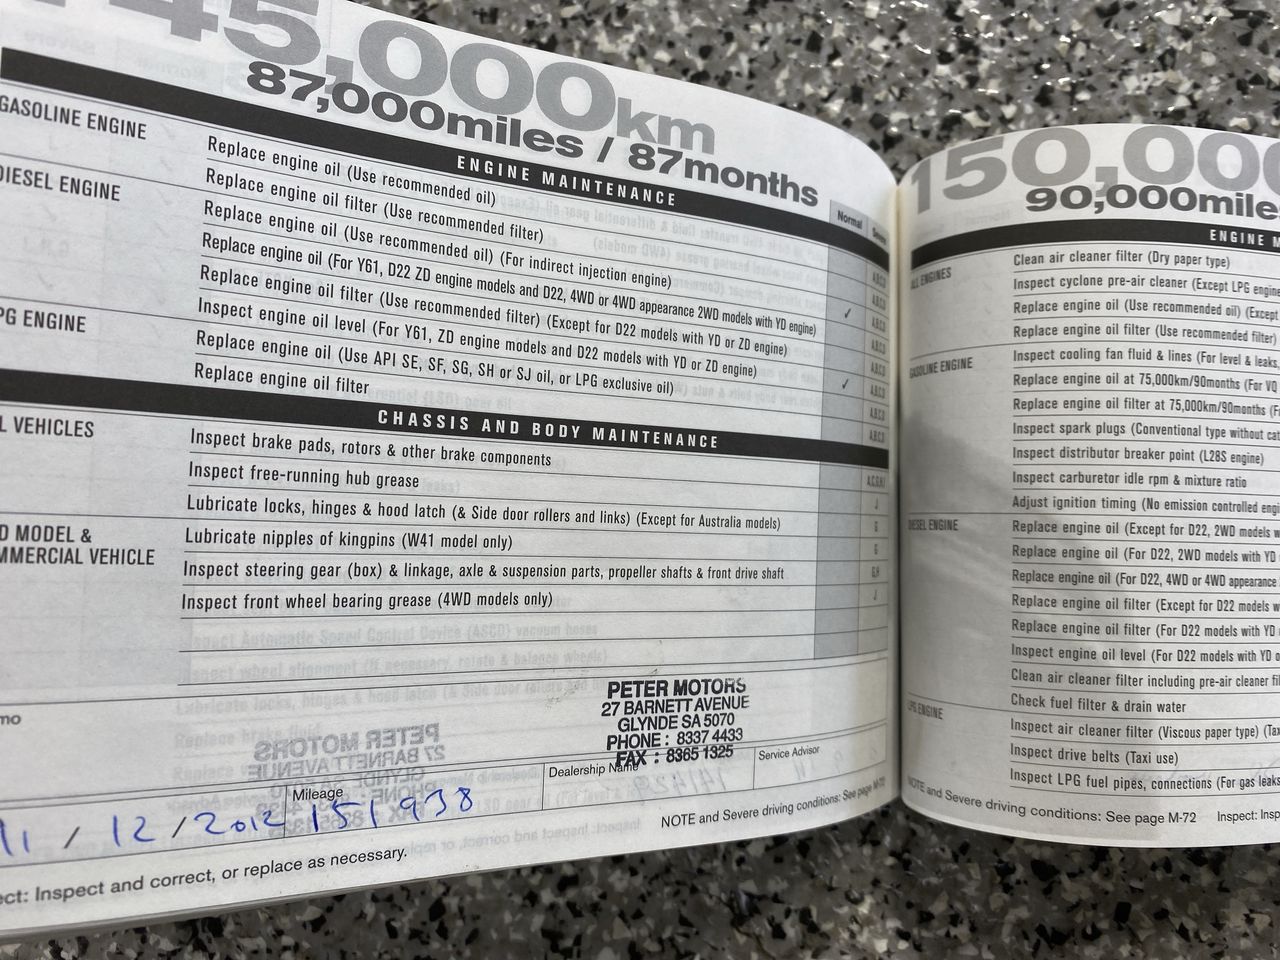 145,000km
87,000miles / 87months
ENGINE MAINTENANCE
Normal
GASOLINE ENGINE
Replace engine oil (Use recommended oil)
Replace engine oil filter (Use recommended filter)
DIESEL ENGINE
Replace engine oil (Use recommended oil) (For indirect injection engine)
Replace engine oil (For Y61, D22 ZD engine models and D22, 4WD or 4WD appearance 2WD models with YD engine) ✓
Replace engine oil filter (Use recommended filter) (Except for D22 models with YD or ZD engine)
Inspect engine oil level (For Y61, ZD engine models and D22 models with YD or ZD engine)
PG ENGINE
Replace engine oil (Use API SE, SF, SG, SH or SJ oil, or LPG exclusive oil) ✓
Replace engine oil filter
CHASSIS AND BODY MAINTENANCE
L VEHICLES
Inspect brake pads, rotors & other brake components
Inspect free-running hub grease
Lubricate locks, hinges & hood latch (& Side door rollers and links) (Except for Australia models)
D MODEL &
MMERCIAL VEHICLE
Lubricate nipples of kingpins (W41 model only)
Inspect steering gear (box) & linkage, axle & suspension parts, propeller shafts & front drive shaft
Inspect front wheel bearing grease (4WD models only)
mo
PETER MOTORS
27 BARNETT AVENUE
GLYNDE SA 5070
PHONE : 8337 4433
FAX : 8365 1325
11 / 12 / 2012
Mileage
151938
Dealership Name
Service Advisor
NOTE and Severe driving conditions: See page M-72
ect: Inspect and correct, or replace as necessary.
150,000
90,000mile
ENGINE M
ALL ENGINES
Clean air cleaner filter (Dry paper type)
Inspect cyclone pre-air cleaner (Except LPG engine
Replace engine oil (Use recommended oil) (Except
Replace engine oil filter (Use recommended filter)
GASOLINE ENGINE
Inspect cooling fan fluid & lines (For level & leaks,
Replace engine oil at 75,000km/90months (For VQ
Replace engine oil filter at 75,000km/90months (F
Inspect spark plugs (Conventional type without cat
Inspect distributor breaker point (L28S engine)
Inspect carburetor idle rpm & mixture ratio
Adjust ignition timing (No emission controlled engi
DIESEL ENGINE
Replace engine oil (Except for D22, 2WD models w
Replace engine oil (For D22, 2WD models with YD
Replace engine oil (For D22, 4WD or 4WD appearance
Replace engine oil filter (Except for D22 models w
Replace engine oil filter (For D22 models with YD
Inspect engine oil level (For D22 models with YD o
Clean air cleaner filter including pre-air cleaner fil
Check fuel filter & drain water
LPG ENGINE
Inspect air cleaner filter (Viscous paper type) (Tax
Inspect drive belts (Taxi use)
Inspect LPG fuel pipes, connections (For gas leaks
NOTE and Severe driving conditions: See page M-72
Inspect: Insp